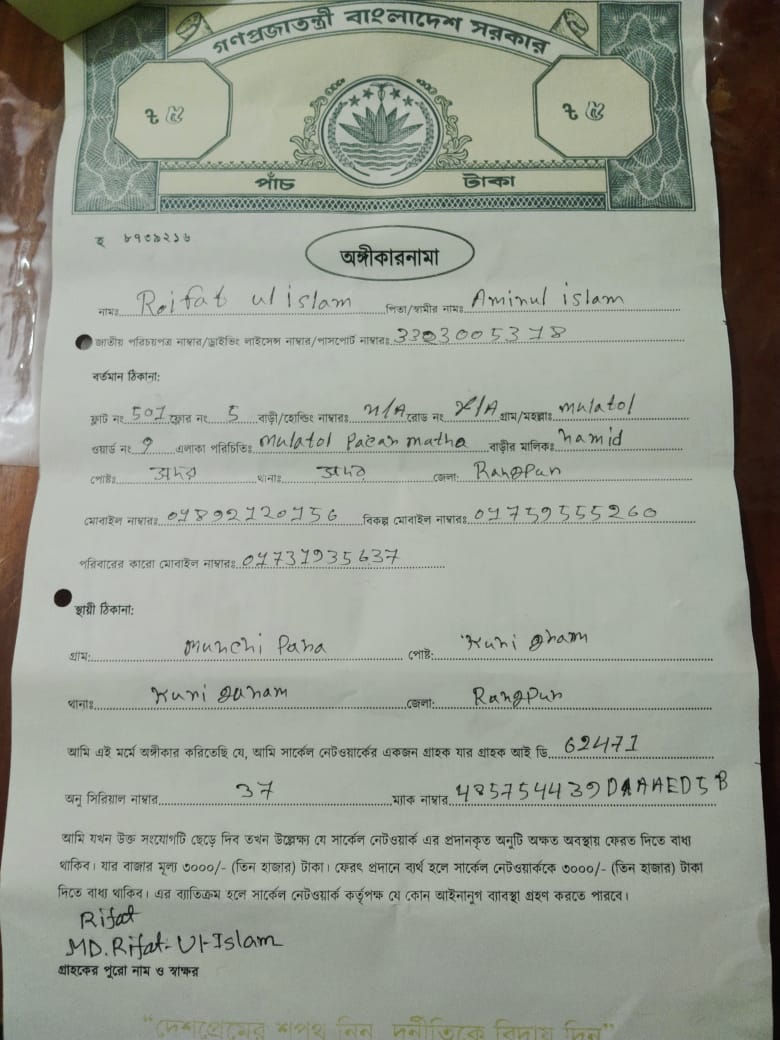 গণপ্রজাতন্ত্রী বাংলাদেশ সরকার
৳ ৫ ৳ ৫
পাঁচ টাকা
হ ৮৭৩৯২১৬
অঙ্গীকারনামা
নামঃ Roifat ul islam পিতা/স্বামীর নামঃ Aminul islam
জাতীয় পরিচয়পত্র নাম্বার/ড্রাইভিং লাইসেন্স নাম্বার/পাসপোর্ট নাম্বারঃ 3323005318
বর্তমান ঠিকানা:
ফ্লাট নং 501 ফ্লোর নং 5 বাড়ী/হোল্ডিং নাম্বারঃ N/A রোড নং N/A গ্রাম/মহল্লাঃ mulatol
ওয়ার্ড নং 9 এলাকা পরিচিতিঃ mulatol Pacar matha বাড়ীর মালিকঃ hamid
পোষ্টঃ সদর থানাঃ সদর জেলা: Rangpur
মোবাইল নাম্বারঃ 01892120156 বিকল্প মোবাইল নাম্বারঃ 01759555260
পরিবারের কারো মোবাইল নাম্বারঃ 01731935637
স্থায়ী ঠিকানা:
গ্রাম: munchi Para পোষ্ট: Kuri gram
থানাঃ Kuri garam জেলা: Rangpur
আমি এই মর্মে অঙ্গীকার করিতেছি যে, আমি সার্কেল নেটওয়ার্কের একজন গ্রাহক যার গ্রাহক আই ডি 62471
অনু সিরিয়াল নাম্বার 37 ম্যাক নাম্বার 485754439DAAAED5B
আমি যখন উক্ত সংযোগটি ছেড়ে দিব তখন উল্লেক্ষ্য যে সার্কেল নেটওয়ার্ক এর প্রদানকৃত অনুটি অক্ষত অবস্থায় ফেরত দিতে বাধ্য
থাকিব। যার বাজার মূল্য ৩০০০/- (তিন হাজার) টাকা। ফেরৎ প্রদানে ব্যর্থ হলে সার্কেল নেটওয়ার্ককে ৩০০০/- (তিন হাজার) টাকা
দিতে বাধ্য থাকিব। এর ব্যতিক্রম হলে সার্কেল নেটওয়ার্ক কর্তৃপক্ষ যে কোন আইনানুগ ব্যাবস্থা গ্রহণ করতে পারবে।
Rifat
MD. Rifat-Ul-Islam
গ্রাহকের পুরো নাম ও স্বাক্ষর
“দেশপ্রেমের শপথ নিন দুর্নীতিকে বিদায় দিন”